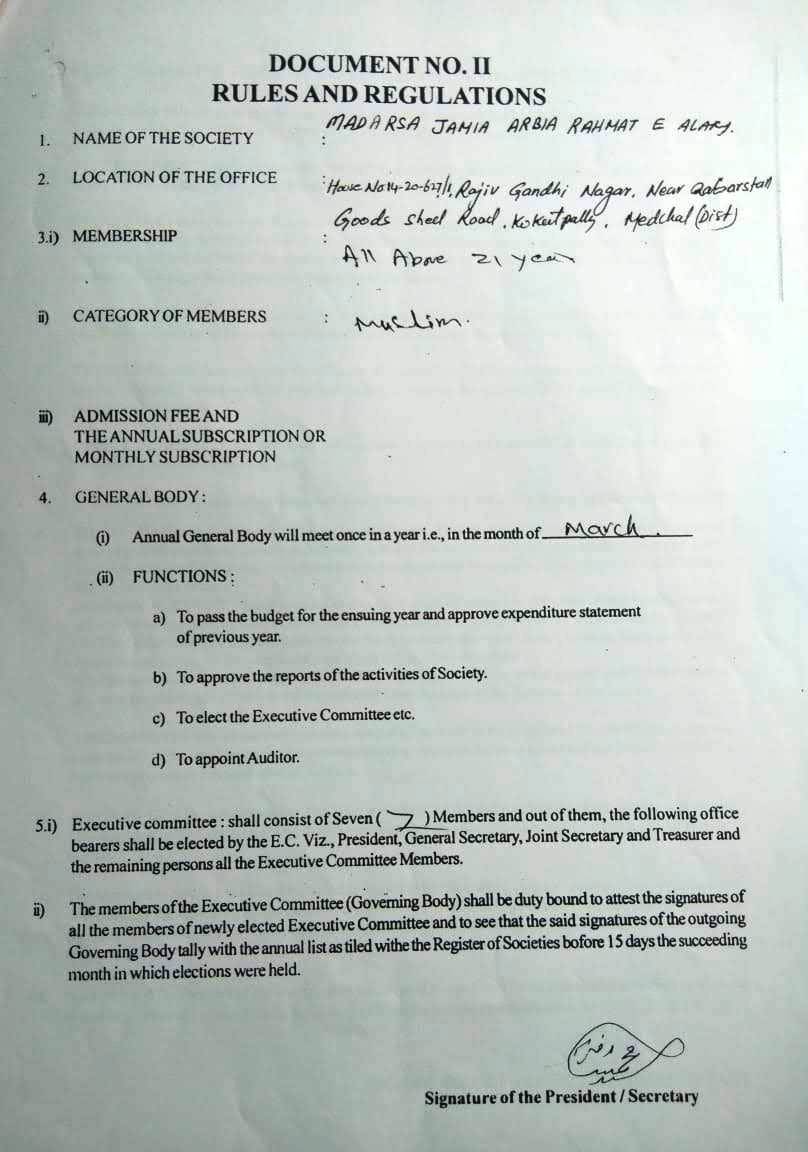 DOCUMENT NO. II
RULES AND REGULATIONS
1. NAME OF THE SOCIETY : MADARSA JAMIA ARBIA RAHMAT E ALAM.
2. LOCATION OF THE OFFICE : House No 14-20-627/1, Rajiv Gandhi Nagar, Near Qabarstan
Goods shed Road, Kukatpally, Medchal (Dist)
3.i) MEMBERSHIP :
All Above 21 years
ii) CATEGORY OF MEMBERS : Muslim.
iii) ADMISSION FEE AND
THE ANNUAL SUBSCRIPTION OR
MONTHLY SUBSCRIPTION
4. GENERAL BODY :
(i) Annual General Body will meet once in a year i.e., in the month of March.
(ii) FUNCTIONS :
a) To pass the budget for the ensuing year and approve expenditure statement
of previous year.
b) To approve the reports of the activities of Society.
c) To elect the Executive Committee etc.
d) To appoint Auditor.
5.i) Executive committee : shall consist of Seven ( 7 ) Members and out of them, the following office
bearers shall be elected by the E.C. Viz., President, General Secretary, Joint Secretary and Treasurer and
the remaining persons all the Executive Committee Members.
ii) The members of the Executive Committee (Governing Body) shall be duty bound to attest the signatures of
all the members of newly elected Executive Committee and to see that the said signatures of the outgoing
Governing Body tally with the annual list as tiled withe the Register of Societies bofore 15 days the succeeding
month in which elections were held.
Signature of the President / Secretary